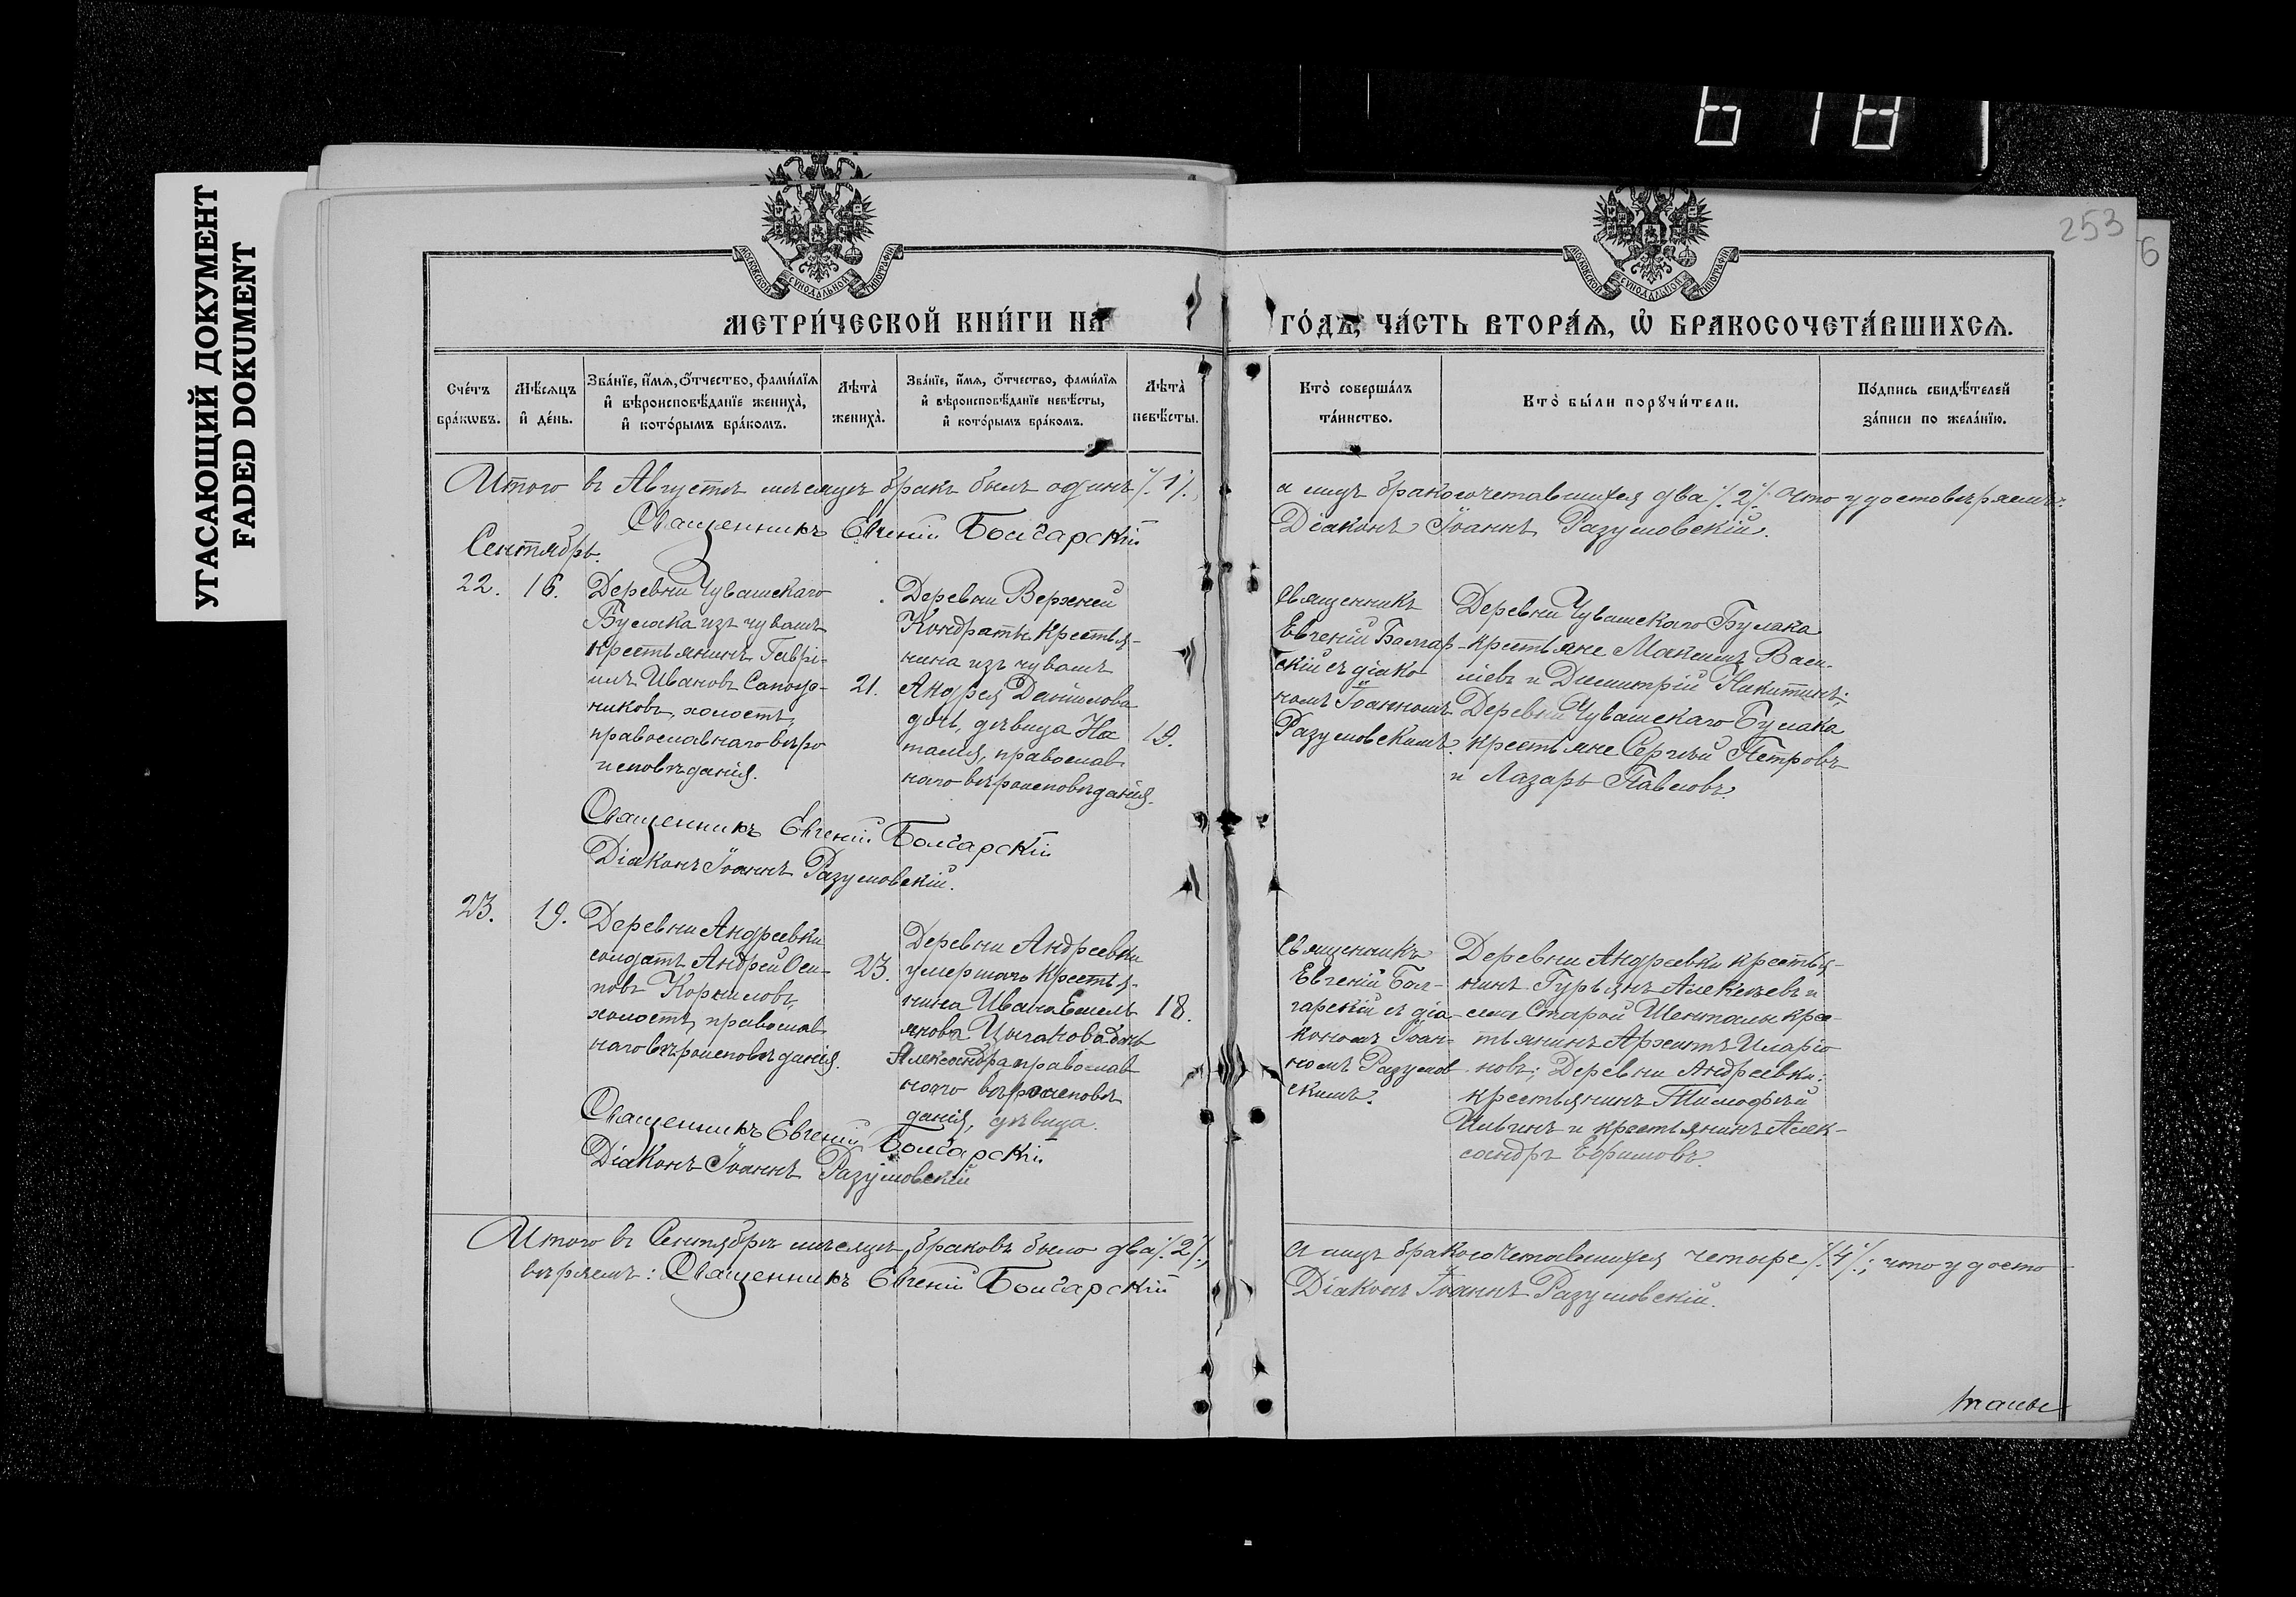 618
УГАСАЮЩИЙ ДОКУМЕНТ
FADED DOKUMENT
253
6
МОСКОВСКОЙ СѴНОДАЛЬНОЙ ТИПОГРАФІИ
МОСКОВСКОЙ СѴНОДАЛЬНОЙ ТИПОГРАФІИ
МЕТРИ́ЧЕСКОЙ КНИ́ГИ НА
ГО́ДЪ, ЧА́СТЬ ВТОРА́Я, Ѡ БРАКОСОЧЕТА́ВШИХСЯ.
Сче́тъ
бра́кѡвъ.
Мѣ́сяцъ
и҆ де́нь.
Зва́нїе, и҆́мя, ѻ҆́тчество, фами́лїя
и҆ вѣроисповѣ́данїе жениха̀,
и҆ кото́рымъ бра́комъ.
Лѣта̀
жениха̀.
Зва́нїе, и҆́мя, ѻ҆́тчество, фами́лїя
и҆ вѣроисповѣ́данїе невѣ́сты,
и҆ кото́рымъ бра́комъ.
Лѣта̀
невѣ́сты.
Кто̀ соверша́лъ
та́инство.
Кто̀ бы́ли порꙋчи́тели.
По́дпись свидѣ́телей
за́писи по жела́нїю.
Итого въ Августѣ мѣсяцѣ бракъ былъ одинъ /.1/.
а лицъ бракосочетавшихся два /.2/. Что удостовѣряемъ:
Священникъ Евгеній Болгарскій
Діаконъ Іоаннъ Разумовскій.
Сентябрь.
22.
16.
Деревни Чувашскаго
Булака изъ чувашъ
крестьянинъ Гаврі-
илъ Ивановъ Сапож-
никовъ, холостъ,
православнаго вѣро
исповѣданія.
21.
Деревни Верхней
Кондраты крестья-
нина изъ чувашъ
Андрея Данилова
дочь, дѣвица На
талия, православ
наго вѣроисповѣданія.
19.
Священникъ
Евгеній Болгар-
скій съ діако
номъ Іоанномъ
Разумовскимъ.
Деревни Чувашскаго Булака
крестьяне Максимъ Васи-
льевъ и Димитрій Никитинъ;
Деревни Чувашскаго Булака
крестьяне Сергѣй Петровъ
и Лазарь Павловъ.
Священникъ Евгеній Болгарскій
Діаконъ Іоаннъ Разумовскій.
23.
19.
Деревни Андреевки
солдатъ Андрей Оси-
повъ Корниловъ,
холостъ, православ
наго вѣроисповѣданія.
23.
Деревни Андреевки
умершаго крестья-
нина Ивана Емель
янова Цыганова дочь
Александра православ
наго вѣроисповѣ
данія, дѣвица.
18.
Священникъ
Евгеній Бол-
гарскій съ діа-
кономъ Іоан-
номъ Разумов
скимъ.
Деревни Андреевки крестья-
нинъ Гурьянъ Алексѣевъ и
села Старой Шенталы крес-
тьянинъ Архипъ Иларіо
новъ; Деревни Андреевки:
крестьянинъ Тимофѣй
Ильинъ и крестьянинъ Алек-
сандръ Ефимовъ.
Священникъ Евгеній Болгарскій
Діаконъ Іоаннъ Разумовскій
Итого въ Сентябрѣ мѣсяцѣ браковъ было два /.2/.,
а лицъ бракосочетавшихся четыре /.4/.; что удосто
вѣряемъ: Священникъ Евгеній Болгарскій
Діаконъ Іоаннъ Разумовскій.